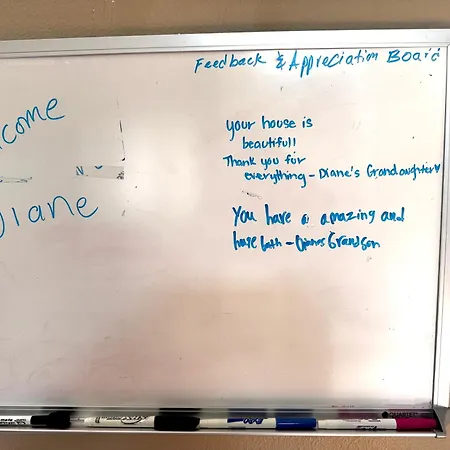 Feedback & Appreciation Board
come
Diane
your house is
beautiful!
Thank you for
everything - Diane's Grandaughter♥
You have a amazing and
huge bath - Dianes Grandson
QUARTET
EXPO